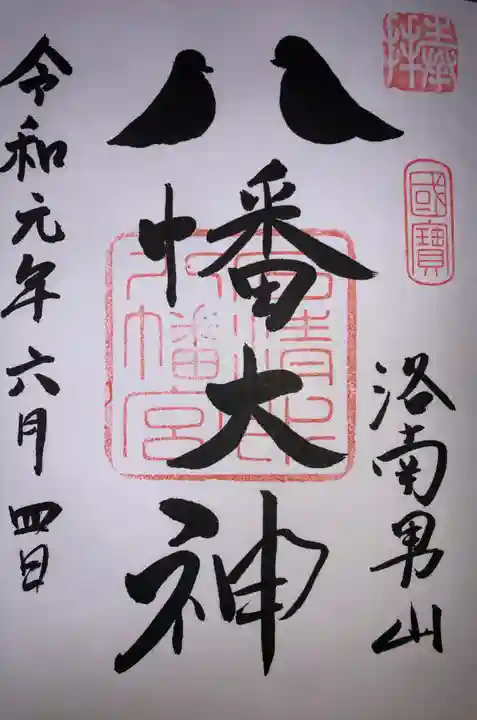 奉拝
國寶
洛南男山
八幡大神
石清水八幡宮
令和元年六月四日